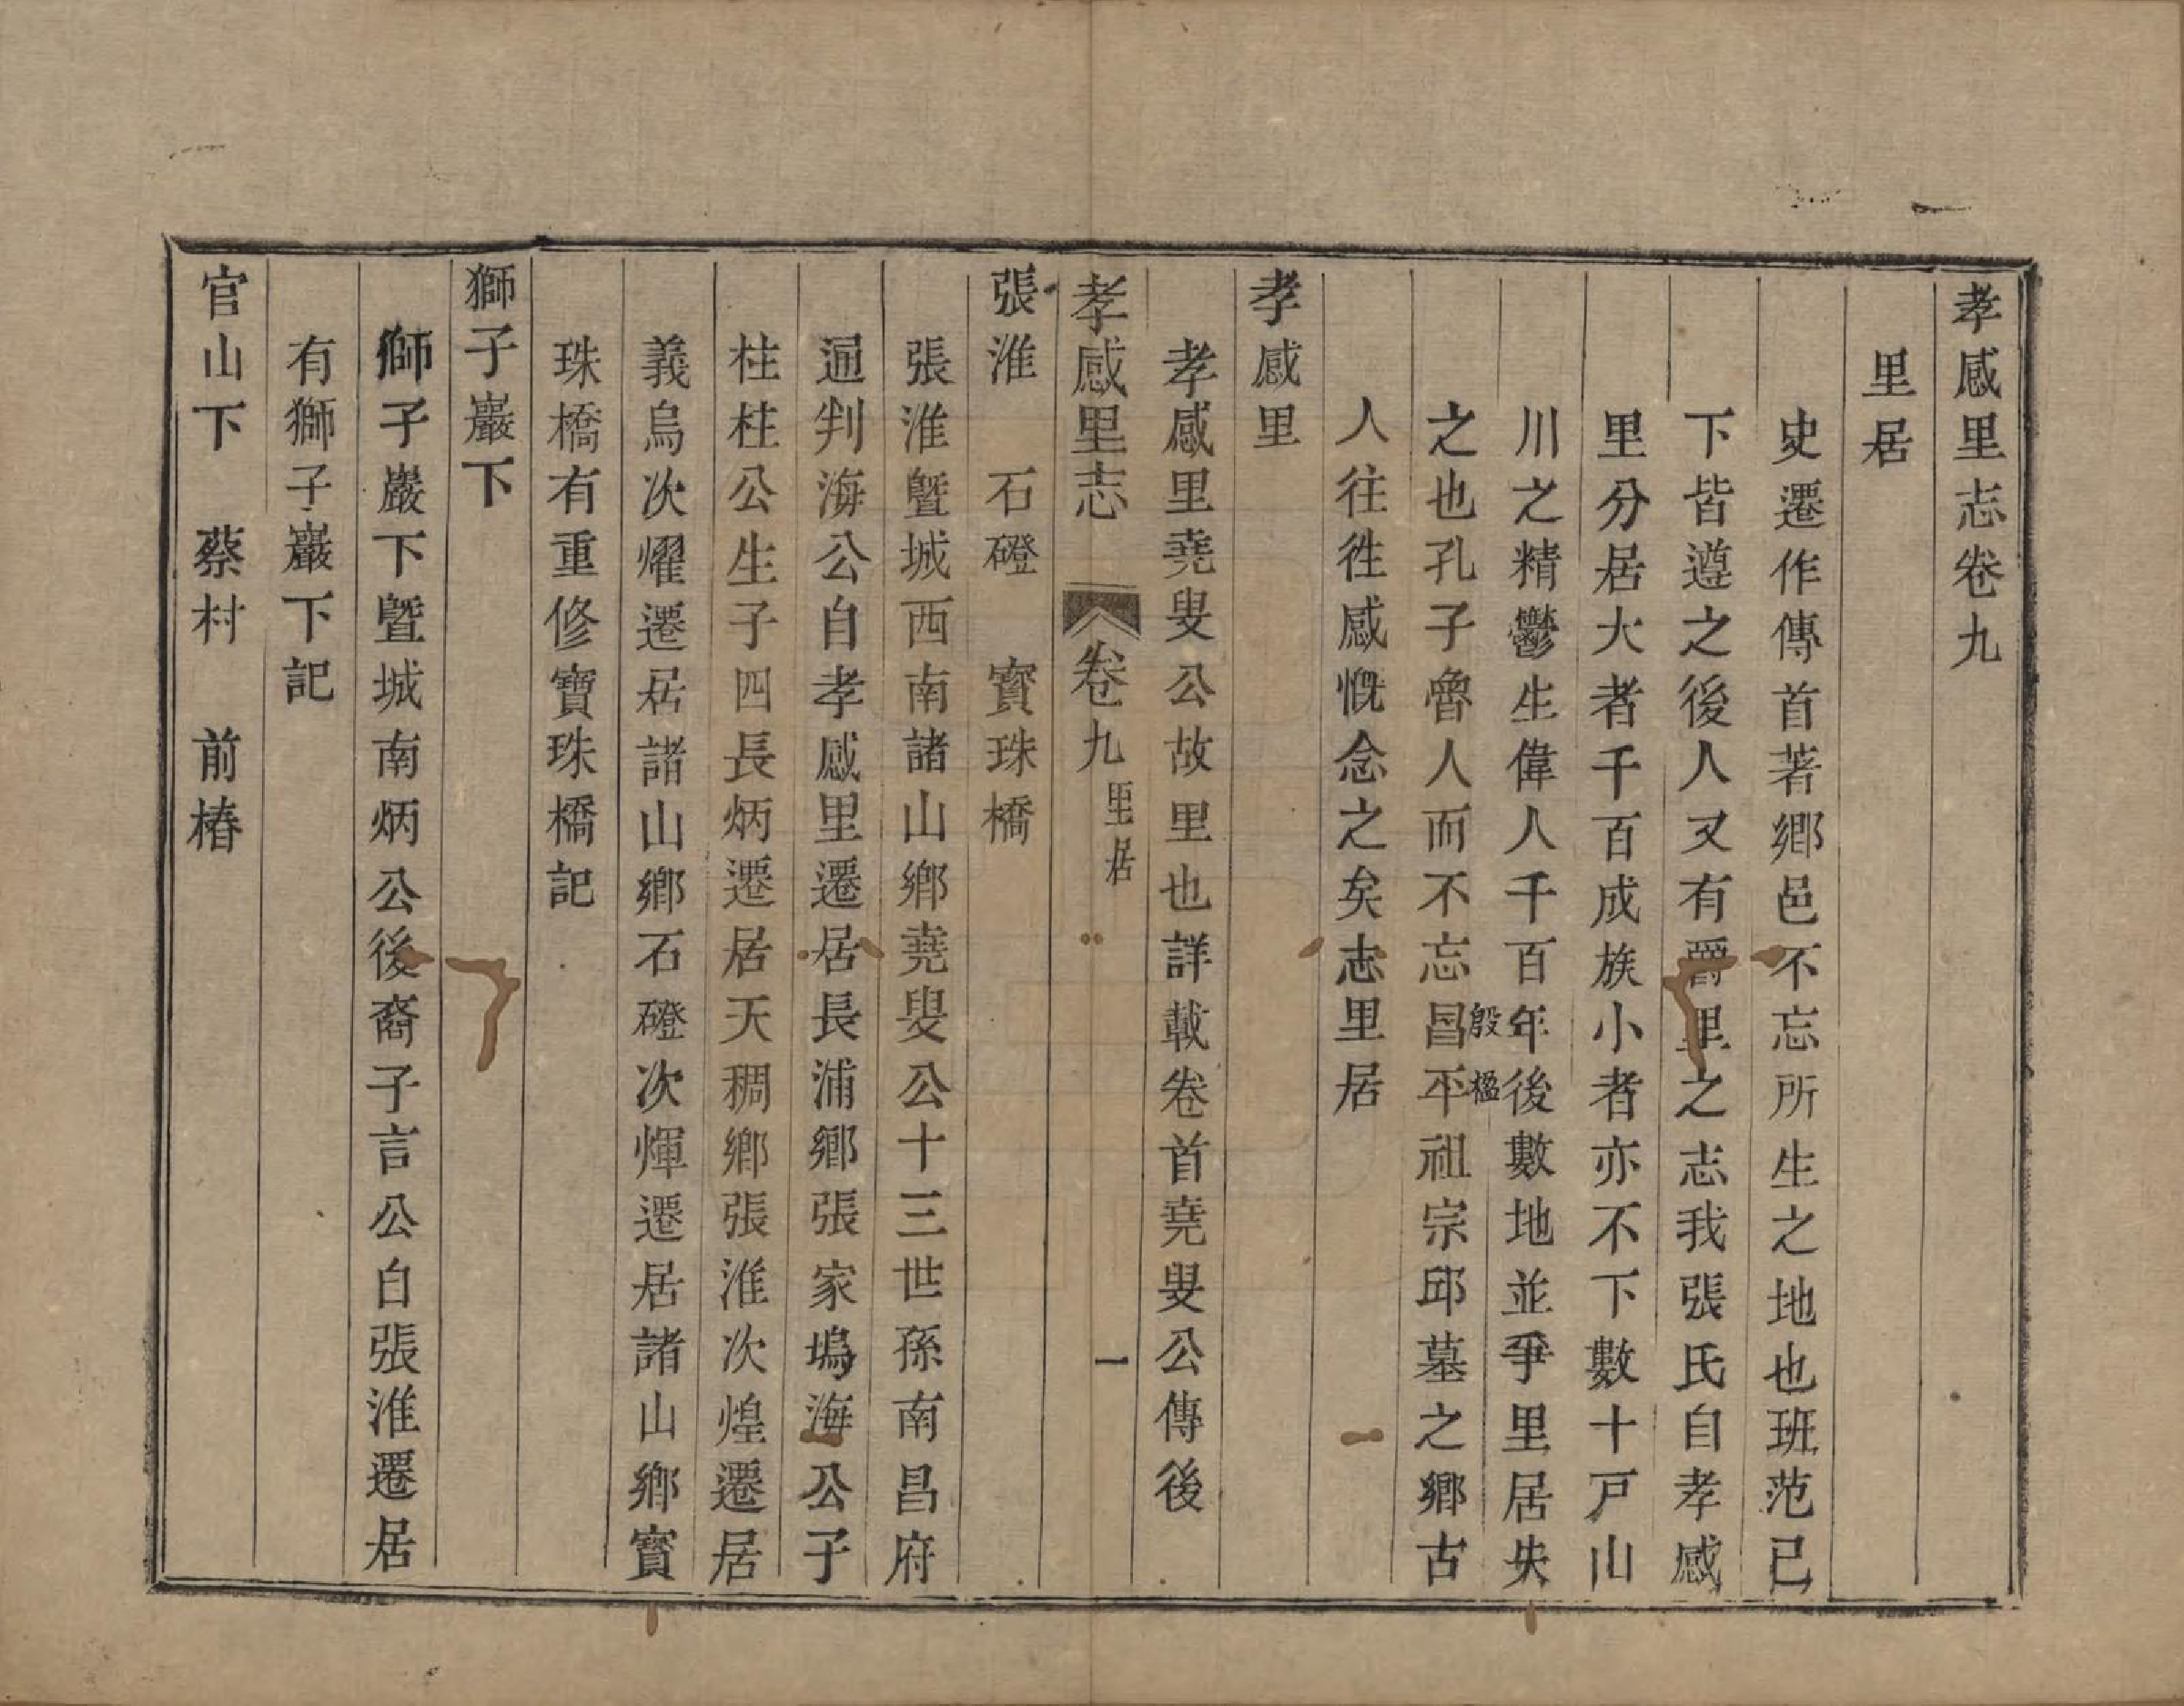 孝感里志卷九
里居
史遷作傳首著鄉邑不忘所生之地也班范已
下皆遵之後人又有爵里之志我張氏自孝感
里分居大者千百成族小者亦不下數十戸山
川之精鬱生偉人千百年後數地並爭里居失
殷楹
之也孔子魯人而不忘昌平祖宗邱墓之鄉古
人往徃感慨念之矣志里居
孝感里
孝感里堯叟公故里也詳載卷首堯叟公傳後
孝感里志 卷九 里居 一
張淮 石磴 寳珠橋
張淮曁城西南諸山鄉堯叟公十三世孫南昌府
通判海公自孝感里遷居長浦鄉張家塢海公子
柱柱公生子四長炳遷居天稠鄉張淮次煌遷居
義烏次燿遷居諸山鄉石磴次煇遷居諸山鄉寳
珠橋有重修寶珠橋記
獅子巖下
獅子巖下曁城南炳公後裔子言公自張淮遷居
有獅子巖下記
官山下 蔡村 前椿